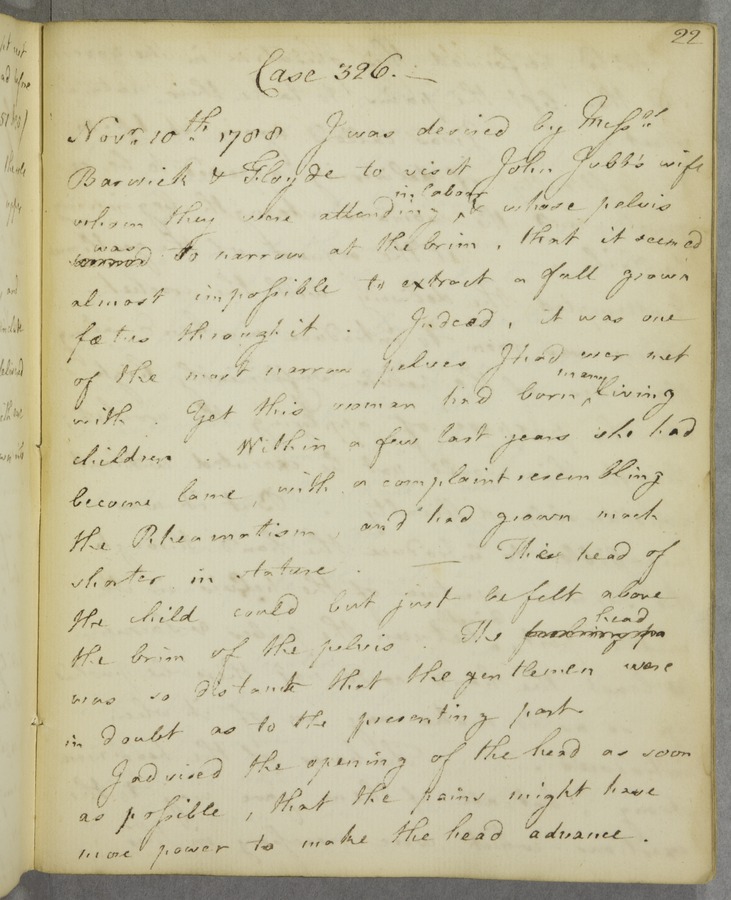 22
Case 326. —
Novr. 10th. 1788 I was desired by Messrs
Barwick & Gloyde to visit John Jubb's wife
whom they were attending in labour & whose pelvis
was so narrow at the brim, that it seemed
almost impossible to extract a full grown
fœtus through it. Indeed, it was one
of the most narrow pelves I had ever met
with. Yet this woman had born many living
children. Within a few last years she had
become lame, with a complaint resembling
the Rheumatism, and had grown much
shorter in stature. — The head of
the child could but just be felt above
the brim of the pelvis. The head
was so distant that the gentlemen were
in doubt as to the presenting part.
I advised the opening of the head as soon
as possible, that the pains might have
more power to make the head advance.